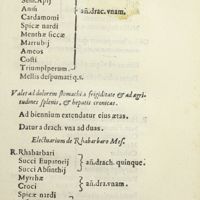 Sem. Apij
Anisi
Cardamomi
Spicæ nardi
Menthæ siccæ
Marrubij
Ameos
Costi
Triũm piperum
añ. drac. vnam.
Mellis despumati q. s.
Valet ad dolorem stomachi a frigiditate & ad ægri-
tudines splenis, & hepatis cronicas.
Ad biennium extendatur eius ætas.
Datur a drach. vna ad duas.
Electuarium de Rhabarbaro Mes.
R. Rhabarbari
Succi Eupatorij
Succi Absinthij
añ. drach. quinque.
Myrrhæ
Croci
añ. dra. vnam.
Spicæ nardi